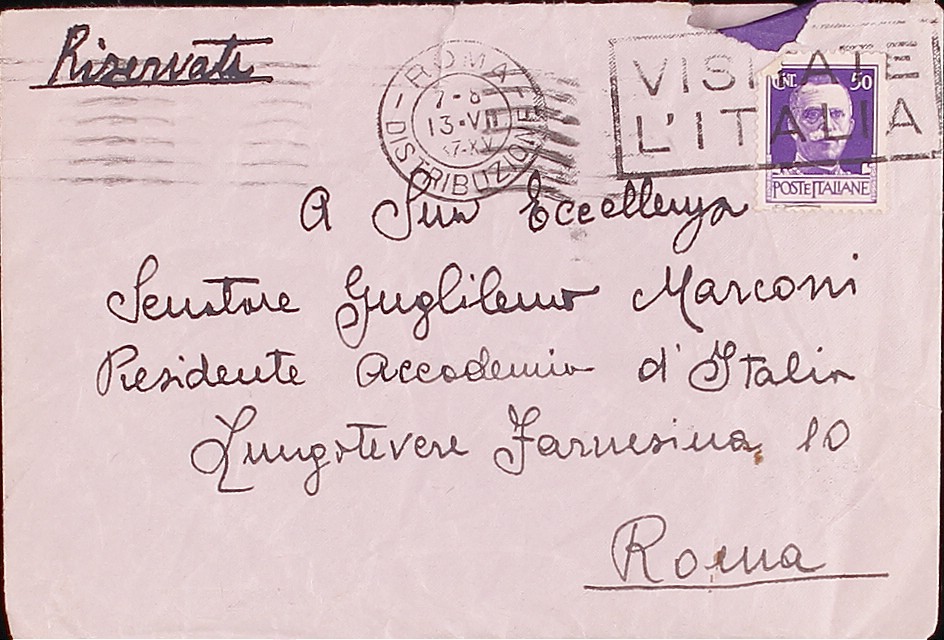 Riservata
ROMA
DISTRIBUZIONE
7-8
13·VII
37-XV
VISITATE
L'ITALIA
CNT. 50
POSTE ITALIANE
A Sua Eccellenza
Senatore Guglilemo Marconi
Presidente Accademia d'Italia
Lungotevere Farnesina 10
Roma